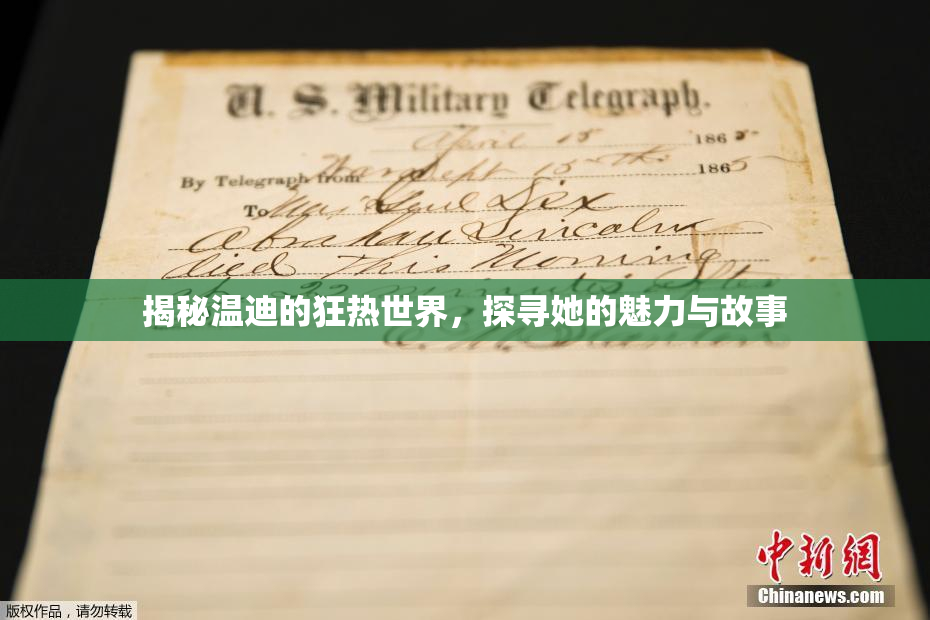 U. S. Military Telegraph.
April 15 1865
By Telegraph from War Dept 15th 1865
To Maj Genl Dix
Abraham Lincoln
died This Morning
at 22 minutes after
揭秘温迪的狂热世界，探寻她的魅力与故事
E. M. Stanton
中新网
Chinanews.com
版权作品，请勿转载